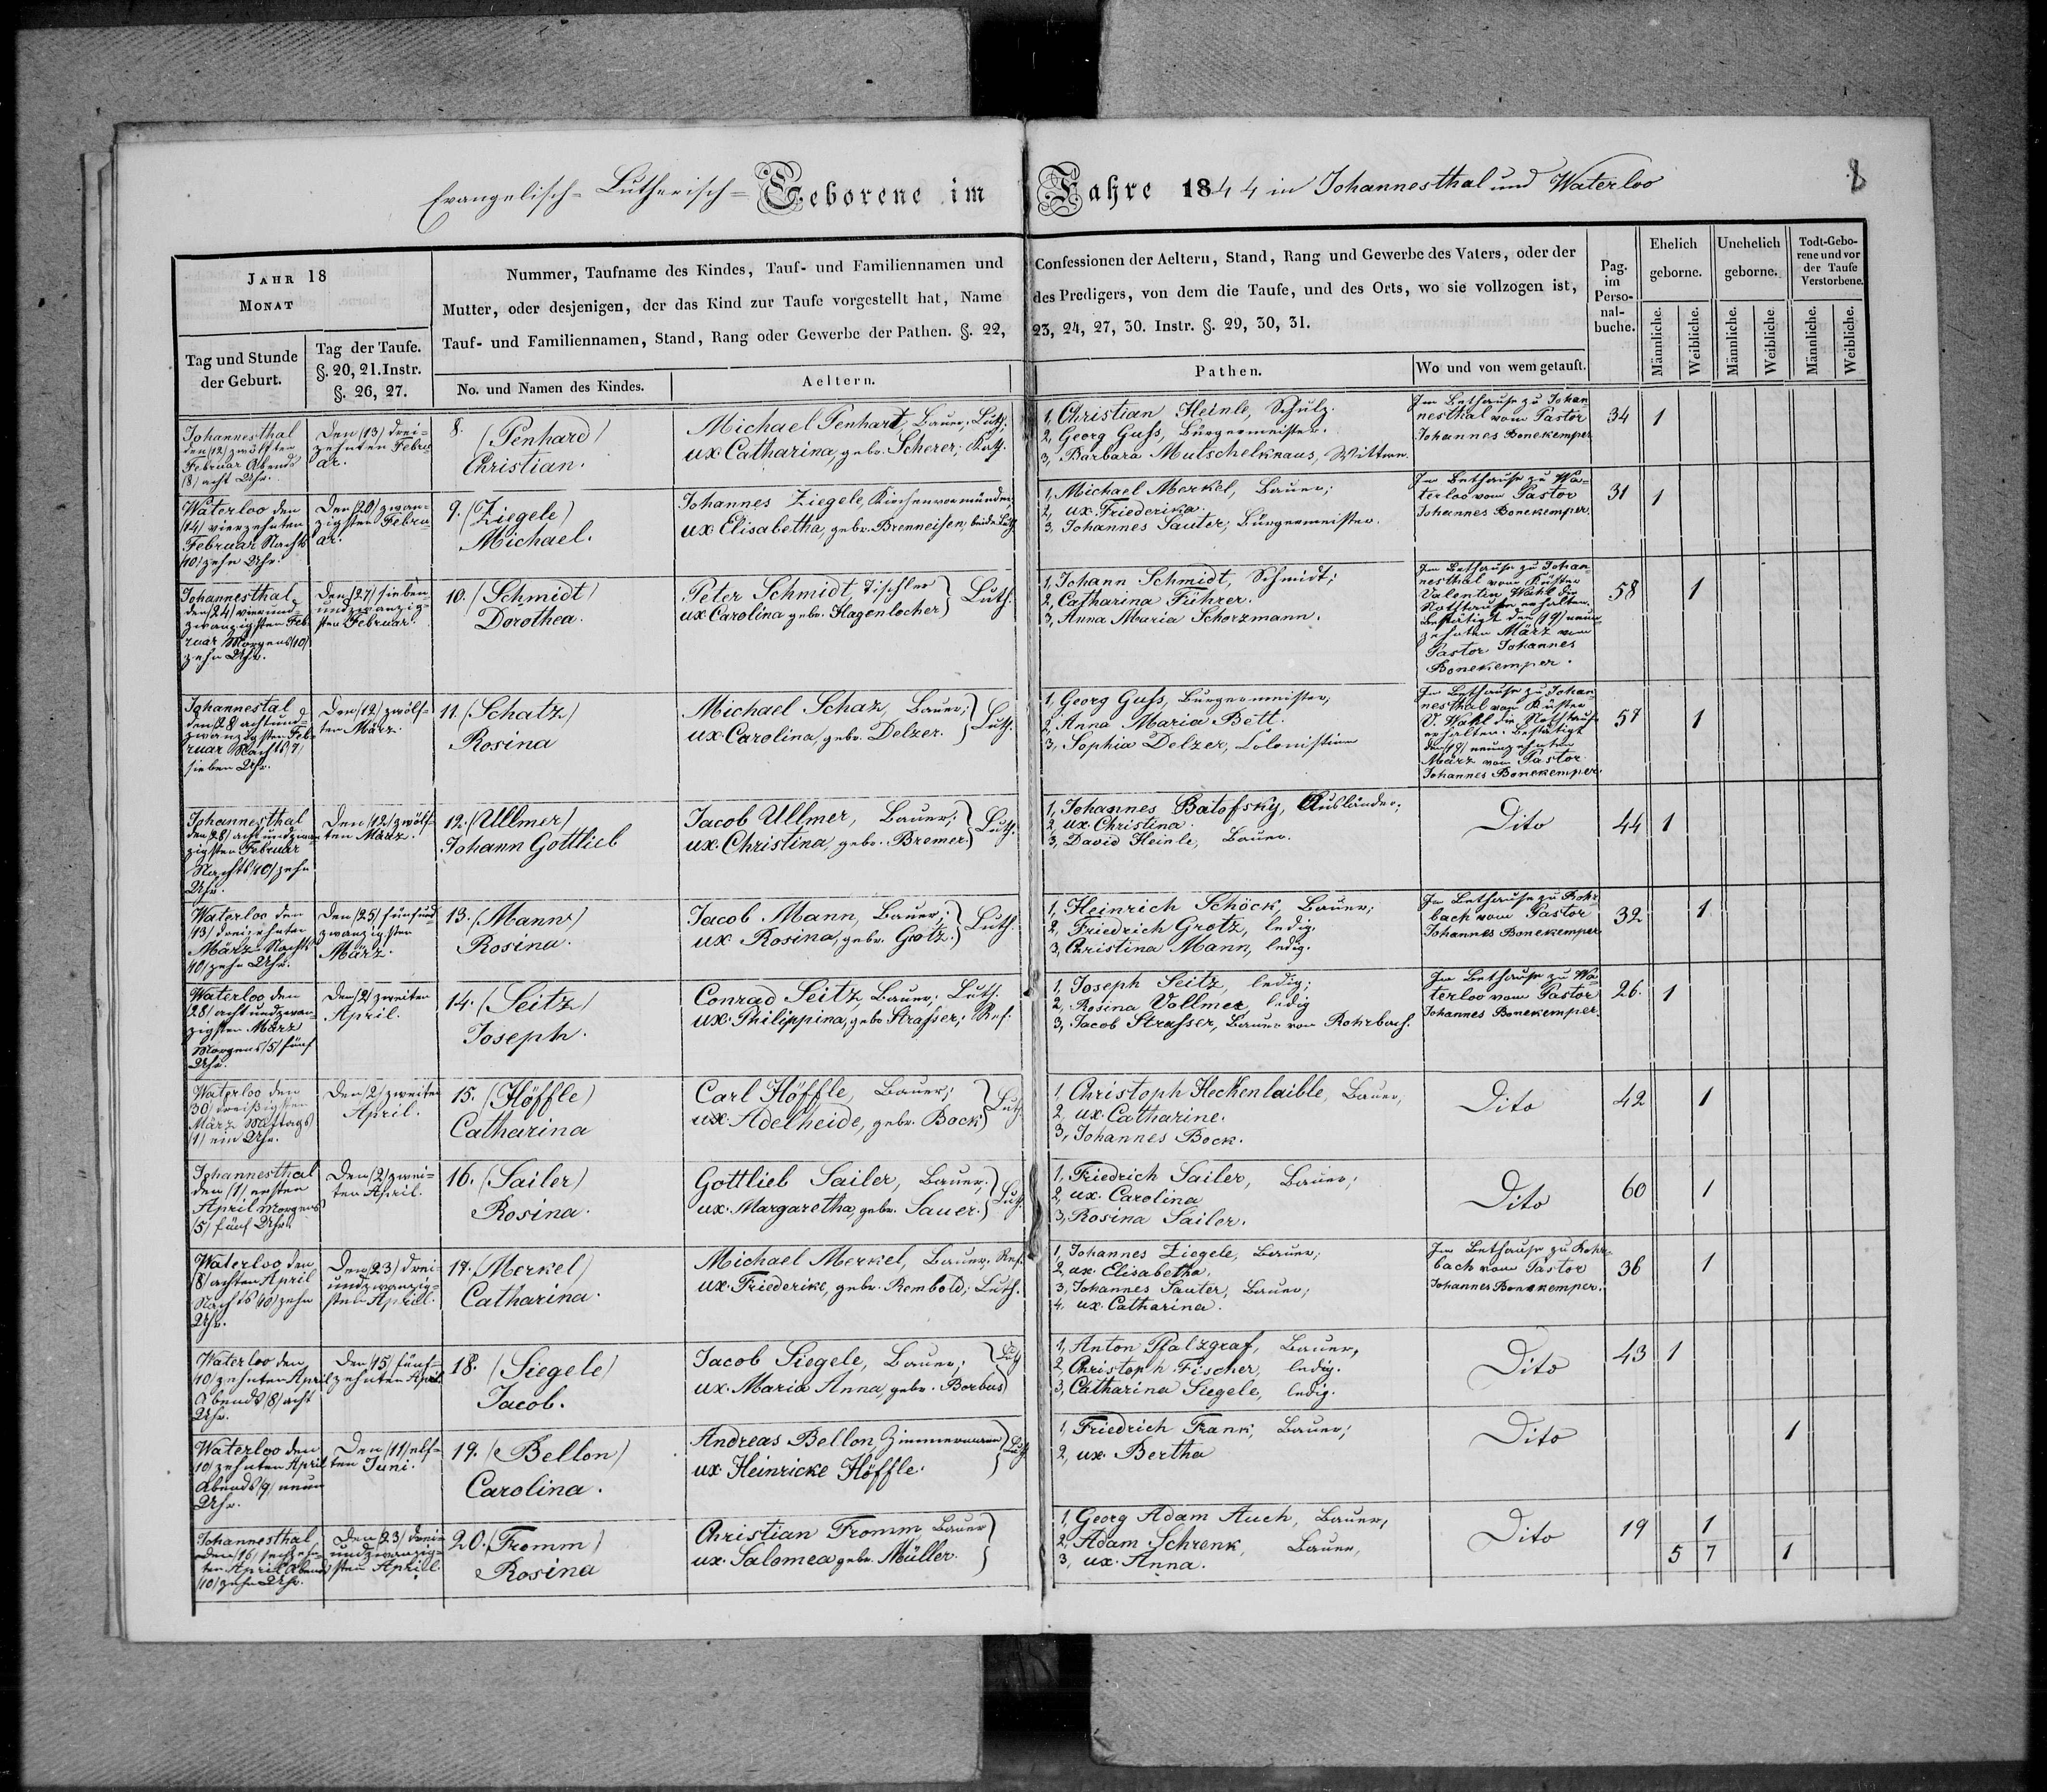 Evangelisch-Lutherisch- Geborene im Jahre 1844 in Johannesthal und Waterloo
8
JAHR 18
MONAT
Tag und Stunde
der Geburt.
Tag der Taufe.
§. 20, 21. Instr.
§. 26, 27.
Nummer, Taufname des Kindes, Tauf- und Familiennamen und
Mutter, oder desjenigen, der das Kind zur Taufe vorgestellt hat, Name
Tauf- und Familiennamen, Stand, Rang oder Gewerbe der Pathen. §. 22,
No. und Namen des Kindes.
Aeltern.
Confessionen der Aeltern, Stand, Rang und Gewerbe des Vaters, oder der
des Predigers, von dem die Taufe, und des Orts, wo sie vollzogen ist,
23, 24, 27, 30. Instr. §. 29, 30, 31.
Pathen.
Wo und von wem getauft.
Pag.
im
Perso-
nal-
buche.
Ehelich
geborne.
Unehelich
geborne.
Todt-Gebo-
rene und vor
der Taufe
Verstorbene.
Männliche.
Weibliche.
Männliche.
Weibliche.
Männliche.
Weibliche.
Johannesthal
den (12) zwölften
Februar Abends
(8) acht Uhr.
Den (13) drei-
zehnten Febru
ar.
8. (Penhard)
Christian.
Michael Penhart, Bauer, Luth.
ux Catharina, gebr. Scherer; Kath.
1, Christian Heinle, Schulz.
2, Georg Guss, Bürgermeister.
3, Barbara Mutschelknaus, Wittwe.
Im Bethause zu Johan
nesthal vom Pastor
Johannes Bonekemper
34 1
Waterloo den
(14) vierzehnten
Februar Nachts
(10) zehn Uhr.
Den (20) zwan-
zigsten Febru
ar.
9. (Ziegele)
Michael.
Johannes Ziegele, Kirchenvormünder,
ux Elisabetha, gebr. Brenneisen, beide Luth.
1, Michael Merkel, Bauer;
2, ux. Friederika.
3, Johannes Sauter; Bürgermeister.
Im Bethause zu Wa-
terloo vom Pastor
Johannes Bonekemper.
31 1
Johannesthal
den (24) vierund-
zwanzigsten Feb
ruar Morgens (10)
zehn Uhr.
Den (27) sieben-
undzwanzig-
sten Februar.
10. (Schmidt)
Dorothea.
Peter Schmidt, Tischler
ux Carolina gebr. Hagenlocher
Luth.
1, Johann Schmidt, Schmidt;
2, Catharina Führer.
3, Anna Maria Schorzmann.
Im Bethause zu Johan-
nesthal vom Küster
Valentin Wahl die
Nothtaufe erhalten.
Bestätigt den (19) neun
zehnten März vom
Pastor Johannes
Bonekemper.
58 1
Johannestal
den (28) achtund-
zwanzigsten Feb-
ruar Nachts (7)
sieben Uhr.
Den (12) zwölf-
ten März.
11. (Schatz)
Rosina
Michael Schaz, Bauer;
ux Carolina, gebr. Delzer.
Luth.
1, Georg Guss, Bürgermeister,
2, Anna Maria Bett.
3, Sophia Delzer, Colonistinn
Im Bethause zu Johan
nesthal vom Küster
V. Wahl die Nothtaufe
erhalten. Bestätigt
den (19) neunzehnten
März vom Pastor
Johannes Bonekemper.
57 1
Johannesthal
den (28) acht und zwan
zigsten Februar
Nachts (10) zehn
Uhr.
Den (12) zwölf-
ten März.
12. (Ullmer)
Johann Gottlieb
Jacob Ullmer, Bauer;
ux. Christina, gebr. Bremer.
Luth.
1, Johannes Batofsky, Ausländer;
2, ux. Christina.
3, David Heinle, Bauer.
Dito
44 1
Waterloo den
13) dreizehnten
März Nachts
10) zehn Uhr.
Den (25) fünfund
zwanzigsten
März.
13. (Mann)
Rosina.
Jacob Mann, Bauer;
ux Rosina, gebr. Grötz.
Luth.
1, Heinrich Schöck, Bauer;
2, Friedrich Grötz, ledig.
3, Christina Mann, ledig.
Im Bethause zu Rohr
bach vom Pastor
Johannes Bonekemper
32 1
Waterloo den
(28) acht und zwan
zigsten März
Morgens (5) fünf
Uhr.
Den (2) zweiten
April.
14. (Seitz)
Joseph.
Conrad Seitz, Bauer; Luth.
ux. Philippina, gebr Strasser; Ref.
1, Joseph Seitz, ledig;
2, Rosina Vollmer, ledig
3, Jacob Strasser, Bauer von Rohrbach.
Im Bethause zu Wa-
terloo vom Pastor
Johannes Bonekemper.
26. 1
Waterloo den
30) dreißigsten
März Mittags
(1) ein Uhr.
Den (2) zweiten
April.
15. (Höffle)
Catharina
Carl Höffle, Bauer;
ux Adelheide, gebr. Bock
Luth.
1, Christoph Heckenlaible, Bauer,
2, ux. Catharine.
3, Johannes Bock.
Dito
42 1
Johannesthal
den (1) ersten
April Morgens
(5) fünf Uhr.
Den (2) zwei-
ten April.
16. (Sailer)
Rosina.
Gottlieb Sailer, Bauer;
ux. Margaretha, gebr. Sauer.
Luth.
1, Friedrich Sailer, Bauer;
2, ux. Carolina
3, Rosina Sailer.
Dito
60 1
Waterloo den
(8) achten April
Nachts (10) zehn
Uhr.
Den (23) drei-
undzwanzig-
sten April.
17. (Merkel)
Catharina.
Michael Merkel, Bauer, Ref.
ux. Friederike, gebr. Rembold; Luth.
1, Johannes Ziegele, Bauer;
2, ux. Elisabetha.
3, Johannes Sauter, Bauer;
4. ux. Catharina.
Im Bethause zu Rohr-
bach vom Pastor
Johannes Bonekemper.
36 1
Waterloo den
10) zehnten April
Abends (8) acht
Uhr.
Den (15) fünf-
zehnten April.
18. (Siegele)
Jacob.
Jacob Siegele, Bauer;
ux. Maria Anna, gebr. Borbus
Luth
1, Anton Pfalzgraf, Bauer,
2 Christoph Fischer, ledig.
3, Catharina Siegele, ledig.
Dito
43 1
Waterloo den
10) zehnten April
Abends (9) neun
Uhr.
Den (11) elf-
ten Juni.
19. (Bellon)
Carolina.
Andreas Bellon, Zimmermann
ux Heinricke Höffle.
Luth.
1, Friedrich Frank, Bauer;
2, ux. Bertha
Dito
1
Johannesthal
den (16) sechzehn-
ten April Abends
(10) zehn Uhr.
Den (23) drei-
undzwanzig-
sten April.
20. (Fromm)
Rosina
Christian Fromm, Bauer
ux. Salomea gebr. Müller.
1, Georg Adam Auch, Bauer,
2, Adam Schrenk, Bauer,
3, ux. Anna.
Dito
19 1
5 7 1